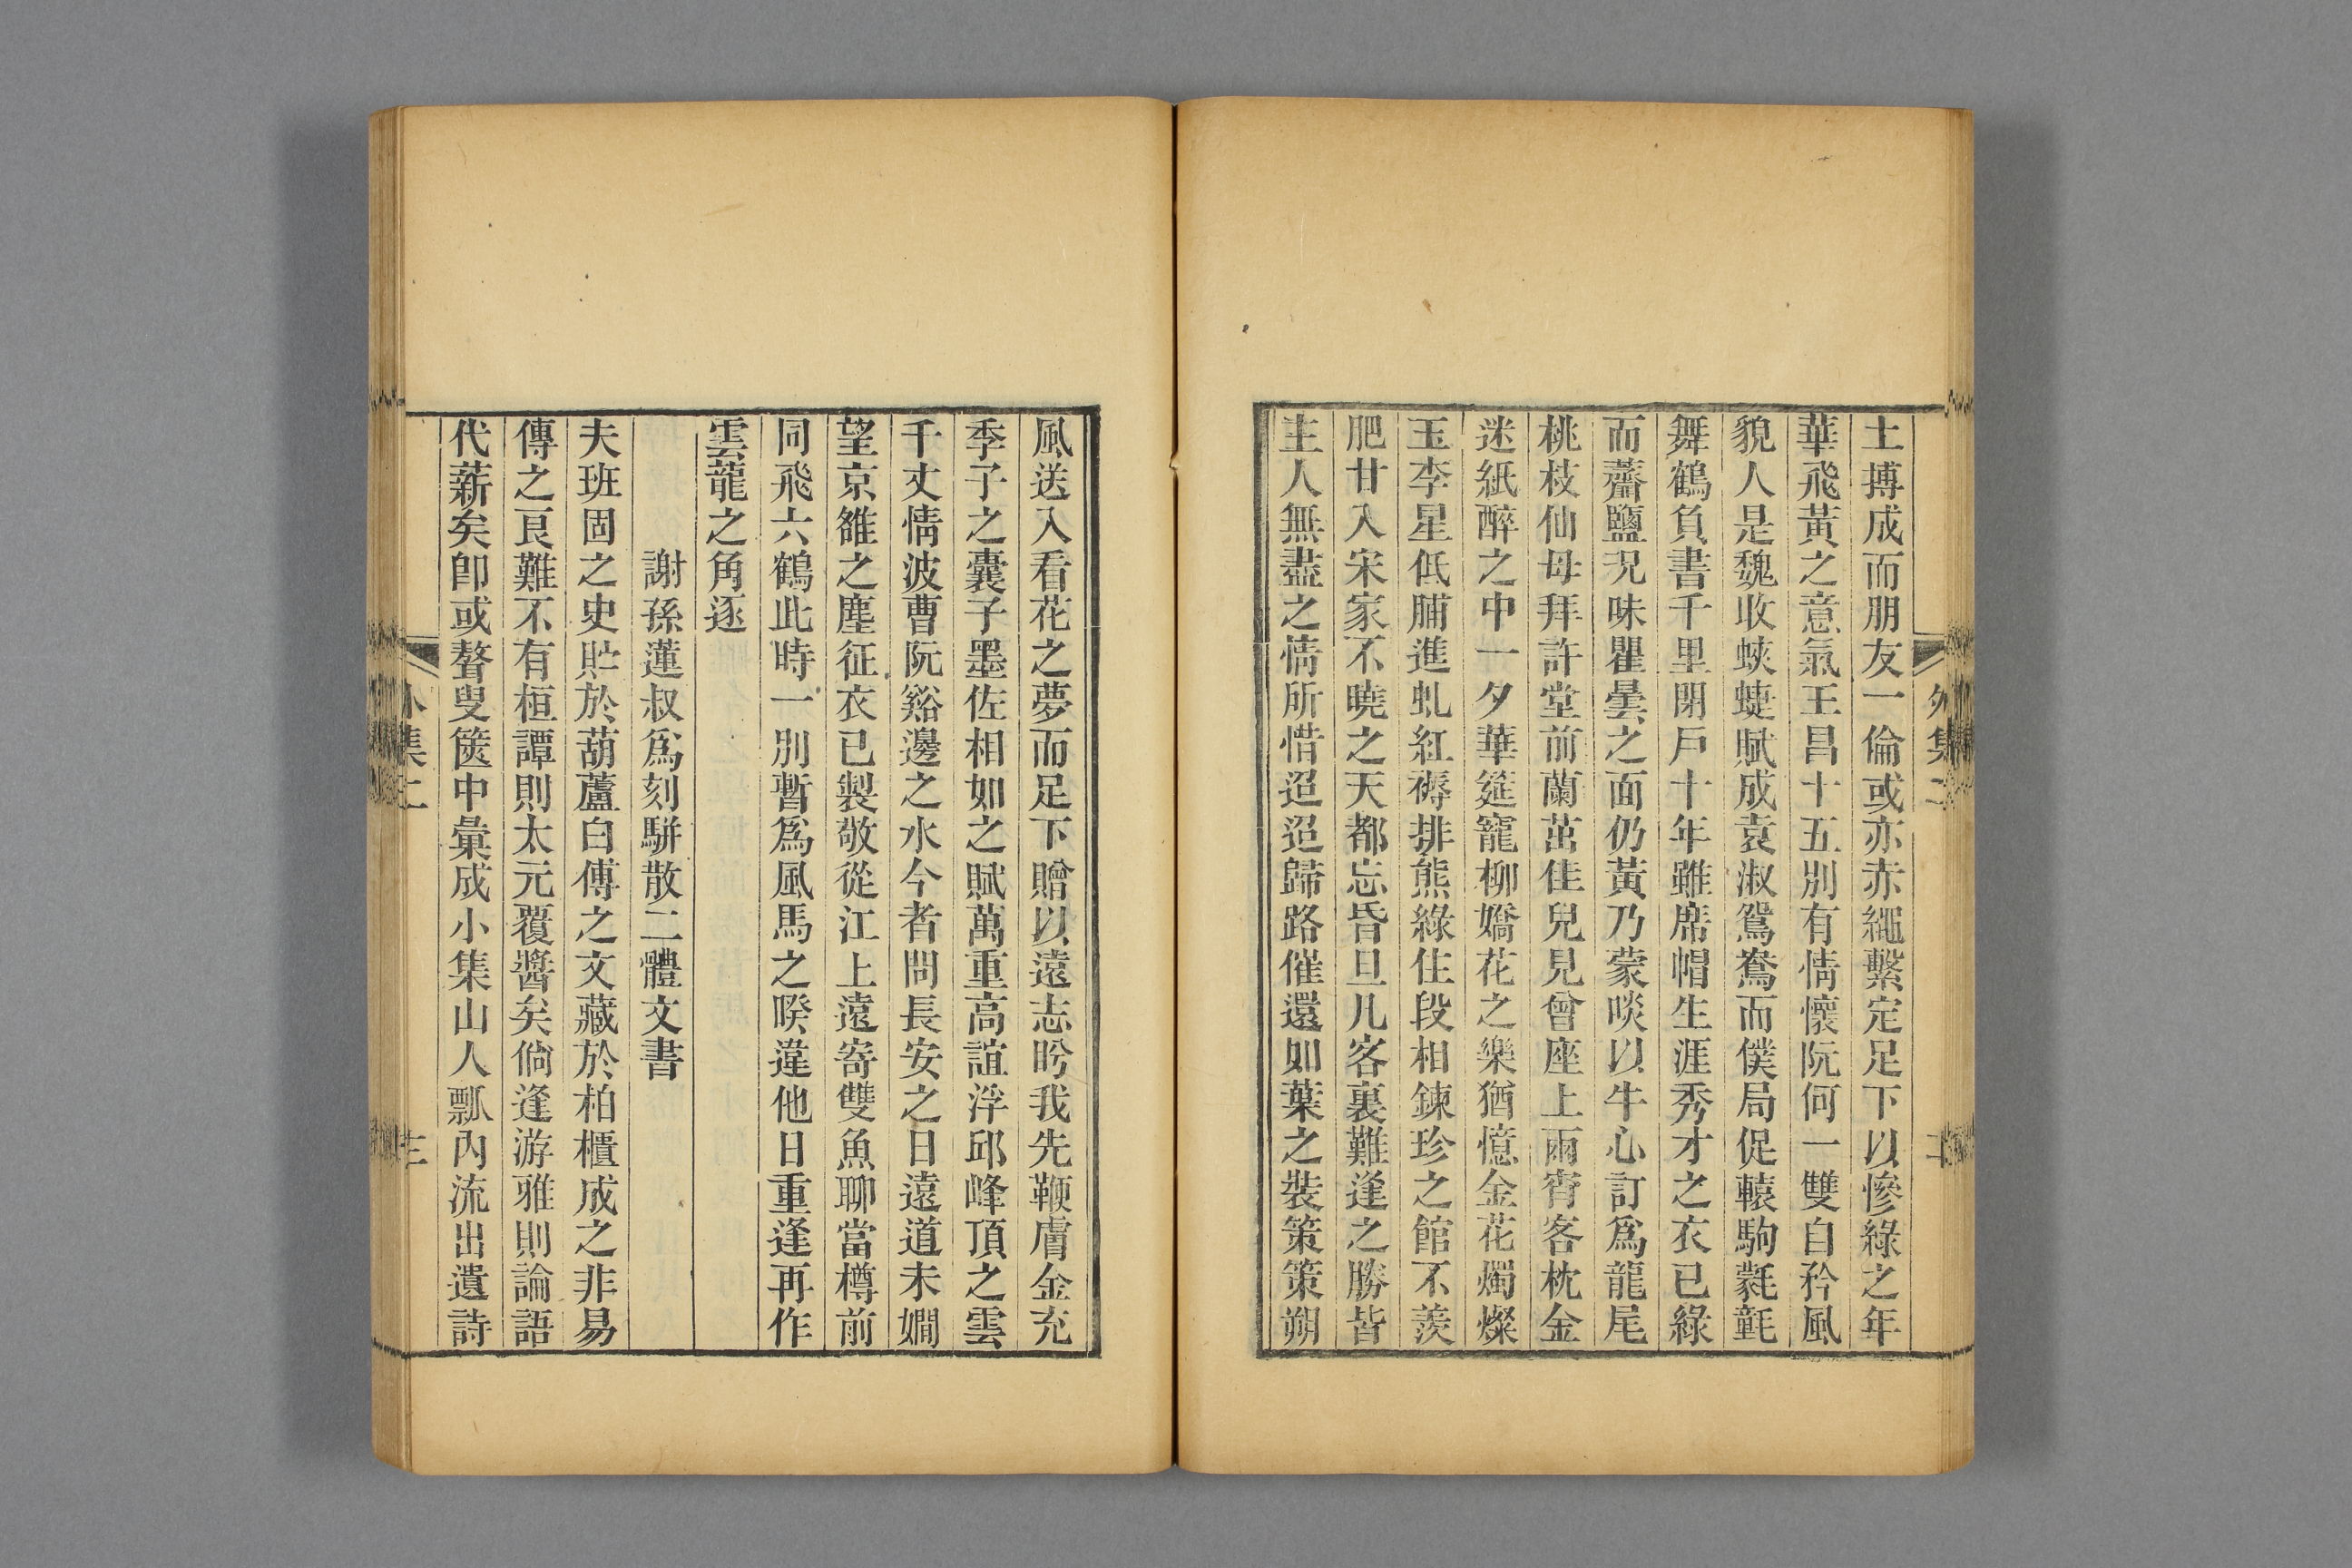 土搏成而朋友一倫或亦赤繩繫定足下以慘綠之年
華飛黃之意氣王昌十五別有情懷阮何一雙自矜風
貌人是魏收蛺蝶賦成袁淑鴛鴦而僕局促轅駒氋氃
舞鶴負書千里閉戶十年雖席帽生涯秀才之衣已綠
而虀鹽況味瞿曇之面仍黃乃蒙啖以牛心訂爲龍尾
桃枝仙母拜許堂前蘭茁佳兒見曾座上雨宵客枕金
迷紙醉之中一夕華筵寵柳嬌花之樂猶憶金花燭燦
玉李星低脯進虬紅褥排熊綠住段相鍊珍之館不羨
肥甘入宋家不曉之天都忘昏旦凡客裏難逢之勝皆
主人無盡之情所惜迢迢歸路催還如葉之裝策策朔
外集二
風送入看花之夢而足下贈以遠志昤我先鞭膚金充
季子之囊子墨佐相如之賦萬重高誼浮邱峰頂之雲
千丈情波曹阮谿邊之水今者問長安之日遠道未嫺
望京雒之塵征衣已製敬從江上遠寄雙魚聊當樽前
同飛六鶴此時一別暫爲風馬之暌違他日重逢再作
雲龍之角逐
謝孫蓮叔爲刻駢散二體文書
夫班固之史貯於葫蘆白傅之文藏於柏櫃成之非易
傳之良難不有桓譚則太元覆醬矣倘逢游雅則論語
代薪矣卽或瞽叟篋中彙成小集山人瓢內流出遺詩